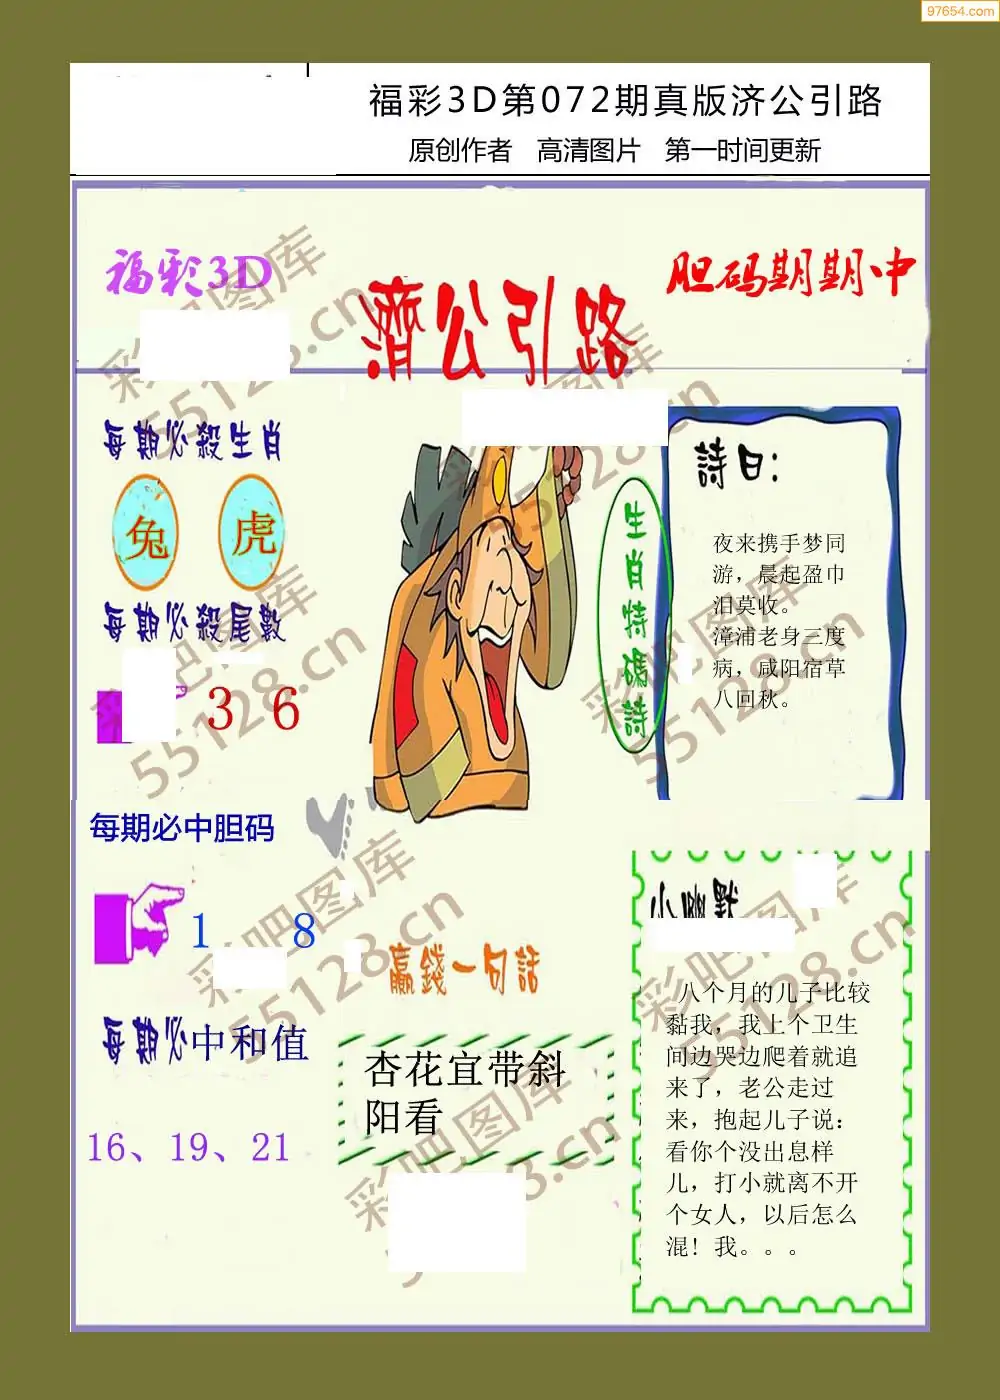 97654.com
福彩3D第072期真版济公引路
原创作者 高清图片 第一时间更新
福彩3D
胆码期期中
濟公引路
每期必殺生肖
兔 虎
每期必殺尾數
3 6
每期必中胆码
1 8
每期必中和值
16、19、21
生肖特碼詩
詩曰:
夜来携手梦同
游，晨起盈巾
泪莫收。
漳浦老身三度
病，咸阳宿草
八回秋。
赢錢一句話
杏花宜带斜
阳看
小幽默
八个月的儿子比较
黏我，我上个卫生
间边哭边爬着就追
来了，老公走过
来，抱起儿子说：
看你个没出息样
儿，打小就离不开
个女人，以后怎么
混！我。。。
彩吧图库
55128.cn
彩吧图库
55128.cn
彩吧图库
55128.cn
彩吧图库
55128.cn
彩吧图库
55128.cn
彩吧图库